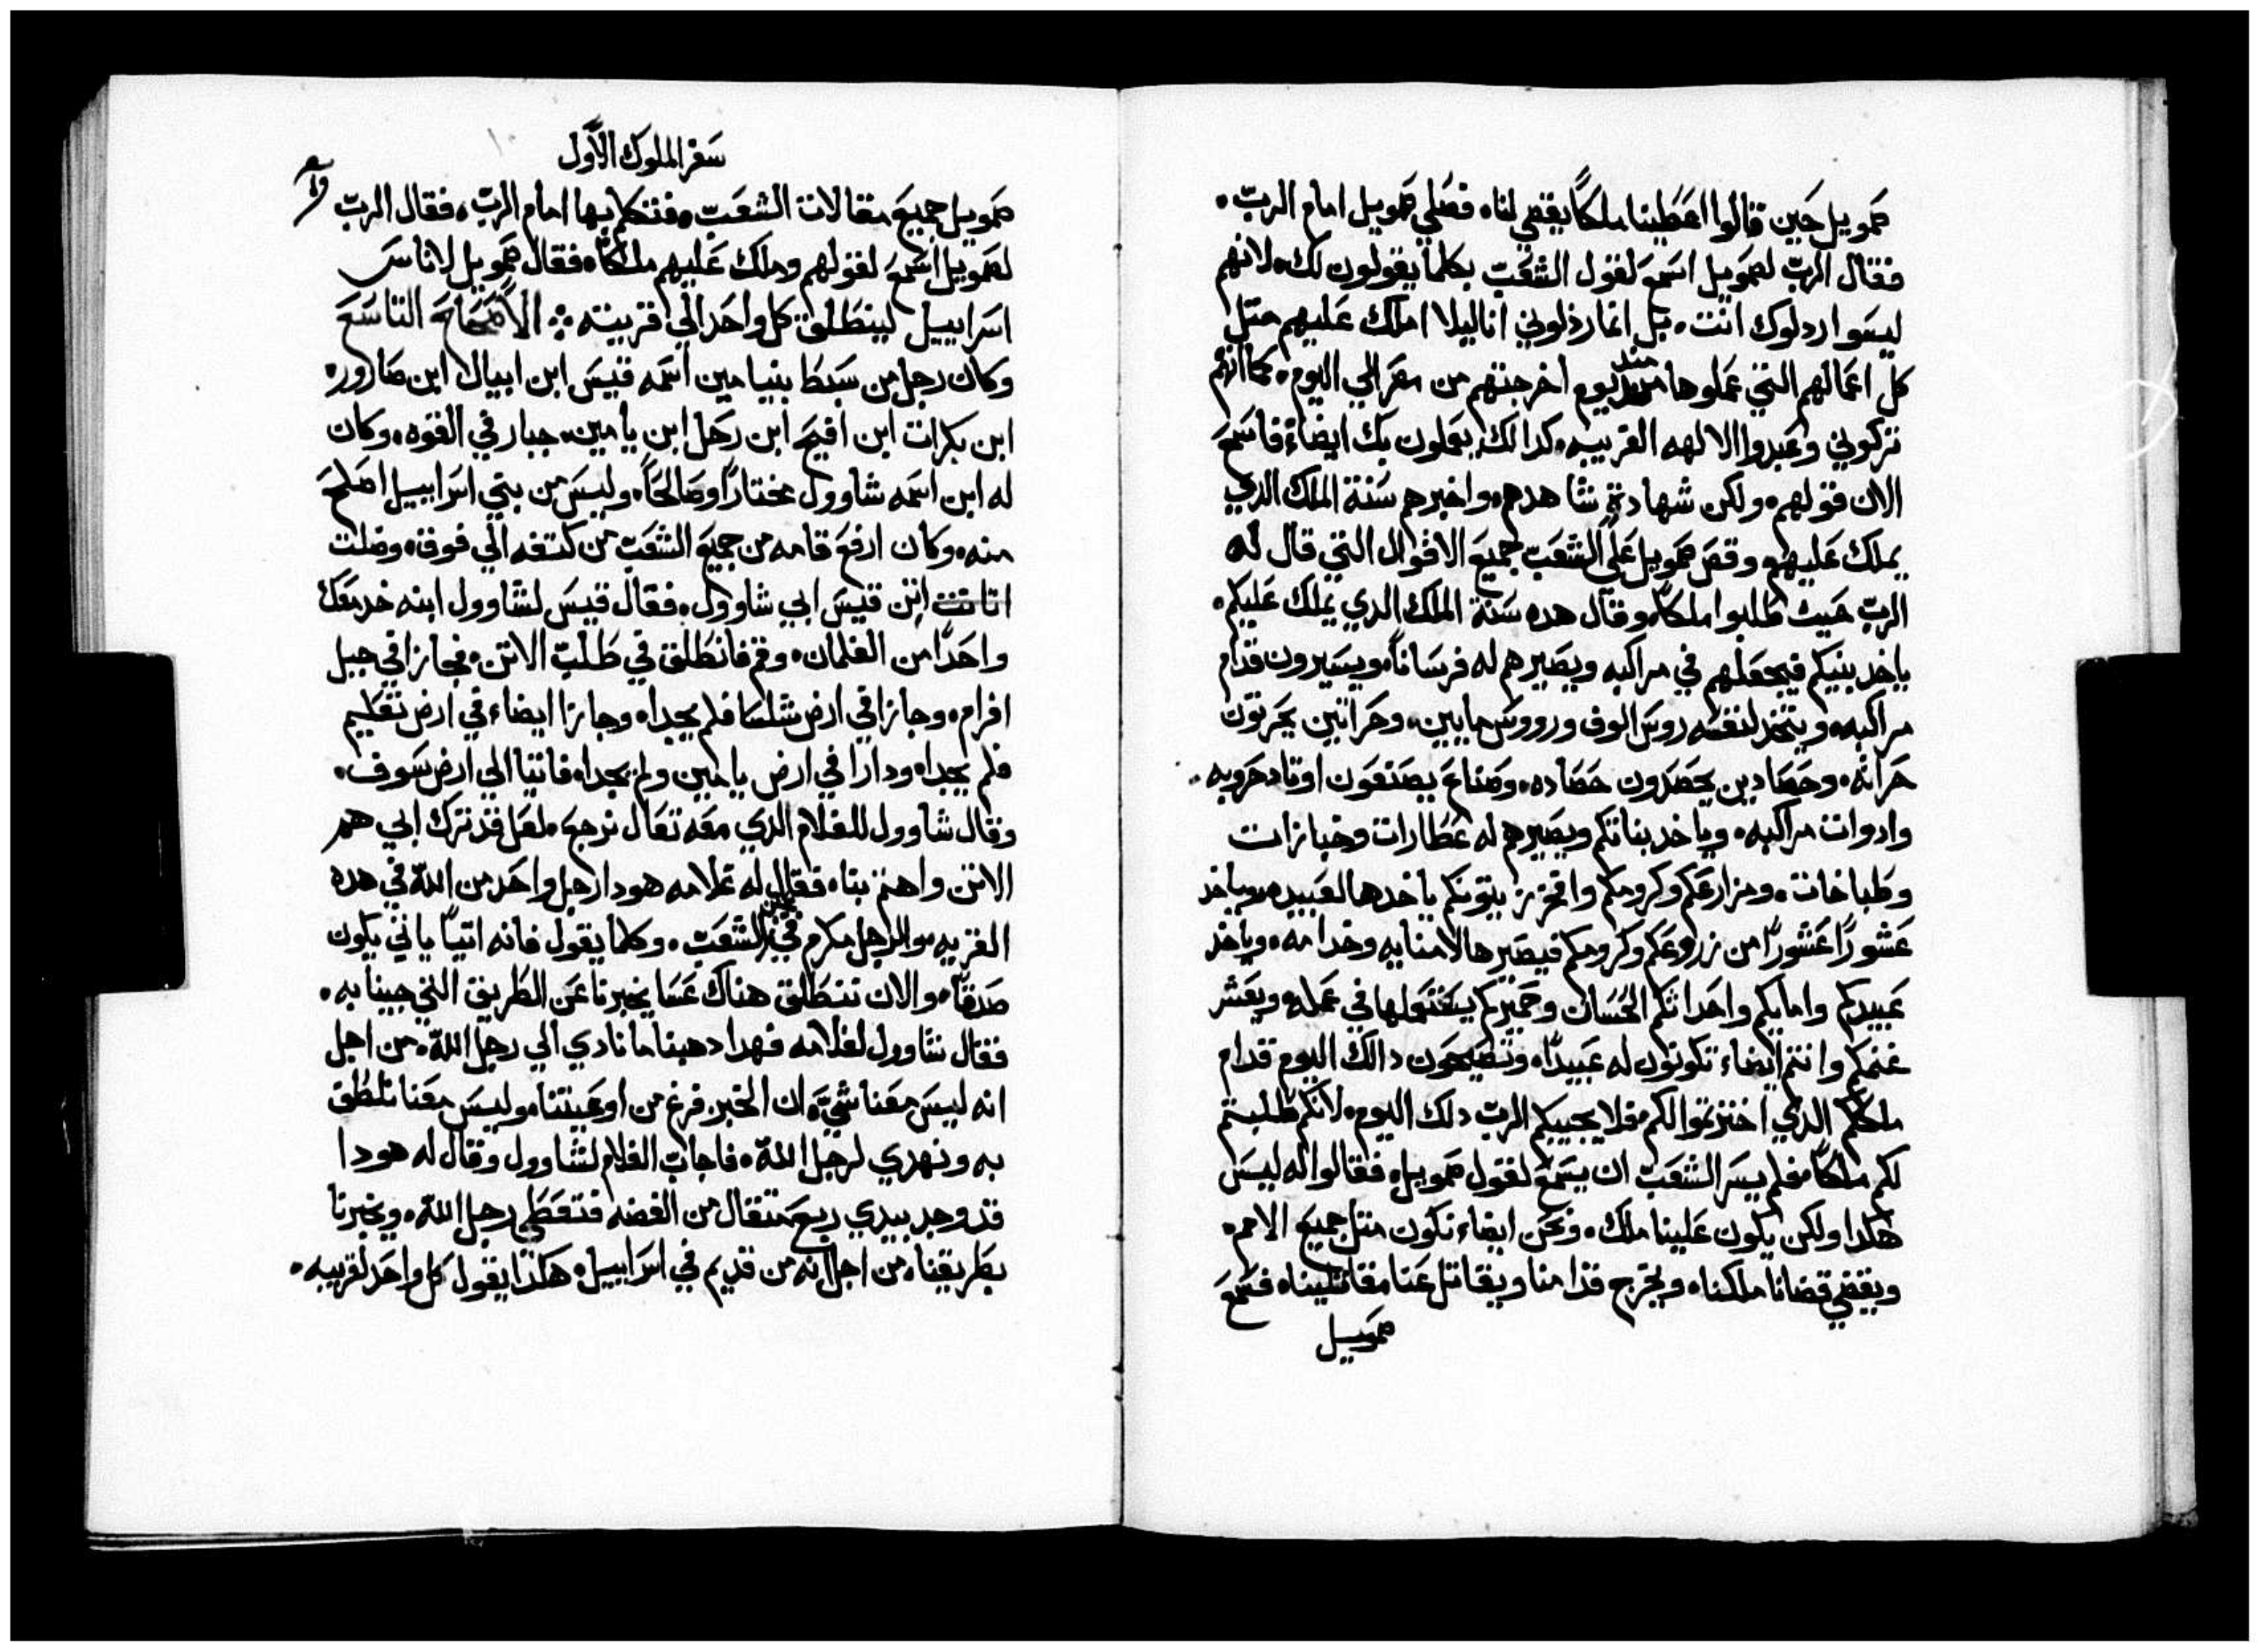 صمويل حين قالوا اعطينا ملكاً يقضي لنا، فصلي صمويل امام الرب.
فقال الرب لصمويل اسمع لقول الشعب بكلما يقولون لك، لانهم
ليسوا ردلوك انت، بل انما رذلوني انا ليلا املك عليهم متل
كل اعمالهم التي عملوها مند يوم اخرجتهم من مصر الي اليوم، كما انهم
تركوني وعبدوا الالهه الغريبه، كدالك يعملون بك ايضاً، فاسمع
الان قولهم، ولكن شهادة شاهدهم، واخبرهم سنة الملك الدي
يملك عليهم، وقص صمويل علي الشعب جميع الاقوال التي قال له
الرب حيث طلبوا ملكاً، وقال هده سنة الملك الدي يملك عليكم.
ياخد بنيكم فيجعلهم في مراكبه ويصيرهم له فرساناً، ويسيرون قدام
مراكبه، ويتخد لنفسه روس الوف وروس مايين، وحراتين يحرتون
حراته، وحصادين يحصدون حصاده، وصناع يصنعون اوتاد حروبه.
وادوات مراكبه، وياخد بناتكم ويصيرهم له عطارات وخبازات
وطباخات، ومزارعكم وكرومكم وافخر زيتونكم ياخدها لعبيده، وياخد
عشوراً عشوراً من زروعكم وكرومكم فيصيرها لامنايه وخدامه، وياخد
عبيدكم وامايكم واحداتكم الحسان وحميركم يستعملها في عمله، ويعشر
غنمكم وانتم ايضاء تكونون له عبيداً، وتصيحون دالك اليوم قدام
ملككم الدي اخترتموا لكم، فلا يجيبكم الرب دلك اليوم، لانكم طلبتم
لكم ملكاً، فلم يسر الشعب ان يسمع لقول صمويل، فقالوا له ليس
هكدا ولكن يكون علينا ملك، ونحن ايضاء نكون متل جميع الامم.
ويقضي قضانا ملكنا، ويخرج قدامنا ويقاتل عنا مقاتلينا، فسمع
صمويل
سفر الملوك الاول
صمويل جميع مقالات الشعب، فتكلم بها امام الرب، فقال الرب
لصمويل اسمع لقولهم وملك عليهم ملكاً، فقال صمويل لاناس
اسراييل لينطلق كل واحد الي قريته ⁘ الاصحاح التاسع
وكان رجل من سبط بنيامين اسمه قيس ابن ابيال ابن صارور،
ابن بكرات ابن افيح ابن رجل ابن يامين، جبار في القوه، وكان
له ابن اسمه شاوول مختاراً وصالحاً، وليس من بني اسراييل اصلح
منه، وكان ارفع قامه من جميع الشعب من كتفه الي فوق، وضلت
اتن قيس ابي شاوول، فقال قيس لشاوول ابنه خد معك
واحداً من الغلمان، وقم فانطلق في طلب الاتن، فجازا في جبل
افرام، وجازا في ارض شلسا فلم يجدا، وجازا ايضاء في ارض تعليم
فلم يجدا، ودارا في ارض يامين ولم يجدا، فاتيا الي ارض سوف،
وقال شاوول للغلام الدي معه تعال نرجع، لعل قد ترك ابي هم
الاتن واهتم بنا، فقال له غلامه هودا رجل واحد من الله في هده
القريه، والرجل مكرم في الشعب، وكلما يقول فانه اتياً ياتي يكون
صدقاً، والان ننطلق هناك عسا يخبرنا عن الطريق التي جينا به،
فقال شاوول لغلامه فهدا دهبنا ما نادي الي رجل الله، من اجل
انه ليس معنا شي، ان الخبز فرغ من اوعيتنا، وليس معنا نلطق
به ونهدي لرجل الله، فاجاب الغلام لشاوول وقال له هودا
قد وجد بيدي ربع متقال من الفضه فتعطي رجل الله، ويخبرنا
بطريقنا، من اجل انه من قديم في اسراييل، هكدا يقول كل واحد لقريبه،